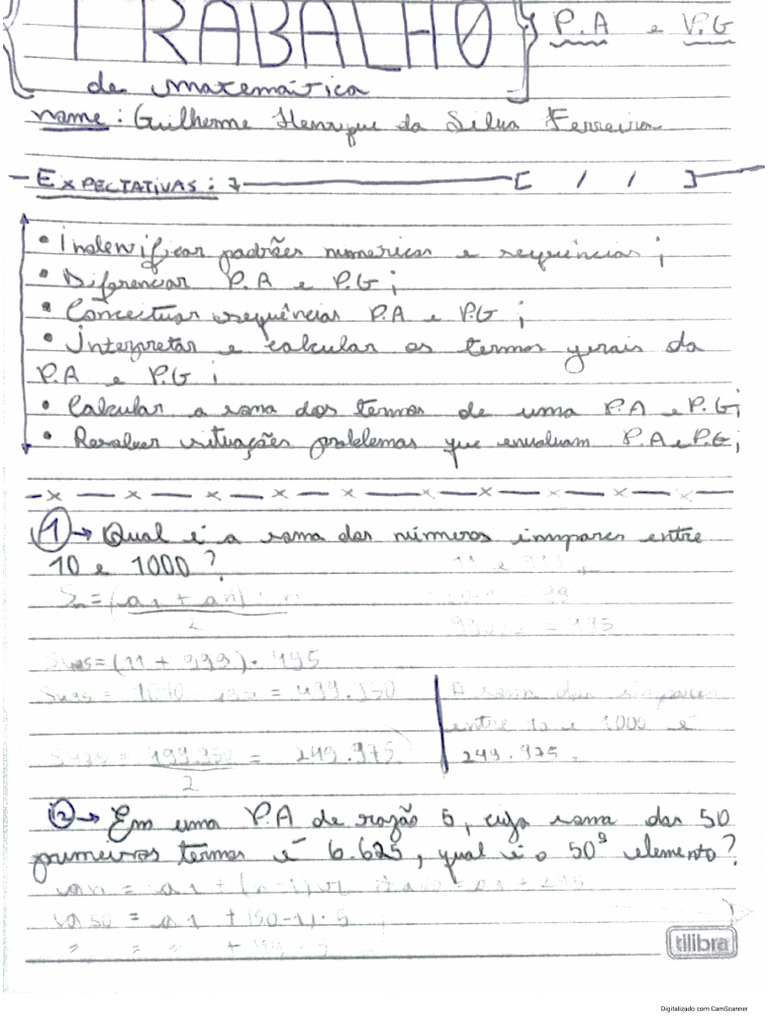 TRABALHO P.A e P.G
de matemática
nome: Guilherme Henrique da Silva Ferreira
EXPECTATIVAS: 7 [ / / ]
• Indentificar padrões numericos e sequências;
• Diferenciar P.A e P.G;
• Conceituar sequências P.A e P.G;
• Interpretar e calcular os termos gerais da
P.A e P.G;
• Calcular a soma dos termos de uma P.A e P.G;
• Resolver situações problemas que envolvam P.A e P.G;
1 → Qual é a soma dos números impares entre
10 e 1000?
Sn = (a1 + an) . n
2
= 495
S495 = (11 + 999) . 495
S495 = 1010 . 495 = 499.950
A soma dos impares
entre 10 e 1000 é
S495 = 499.950 = 249.975
249.975.
2
2 → Em uma P.A de razão 5, cuja soma dos 50
primeiros termos é 6.625, qual é o 50º elemento?
an = a1 + (n-1) . r
a50 = a1 + (50-1) . 5
tilibra
Digitalizado com CamScanner